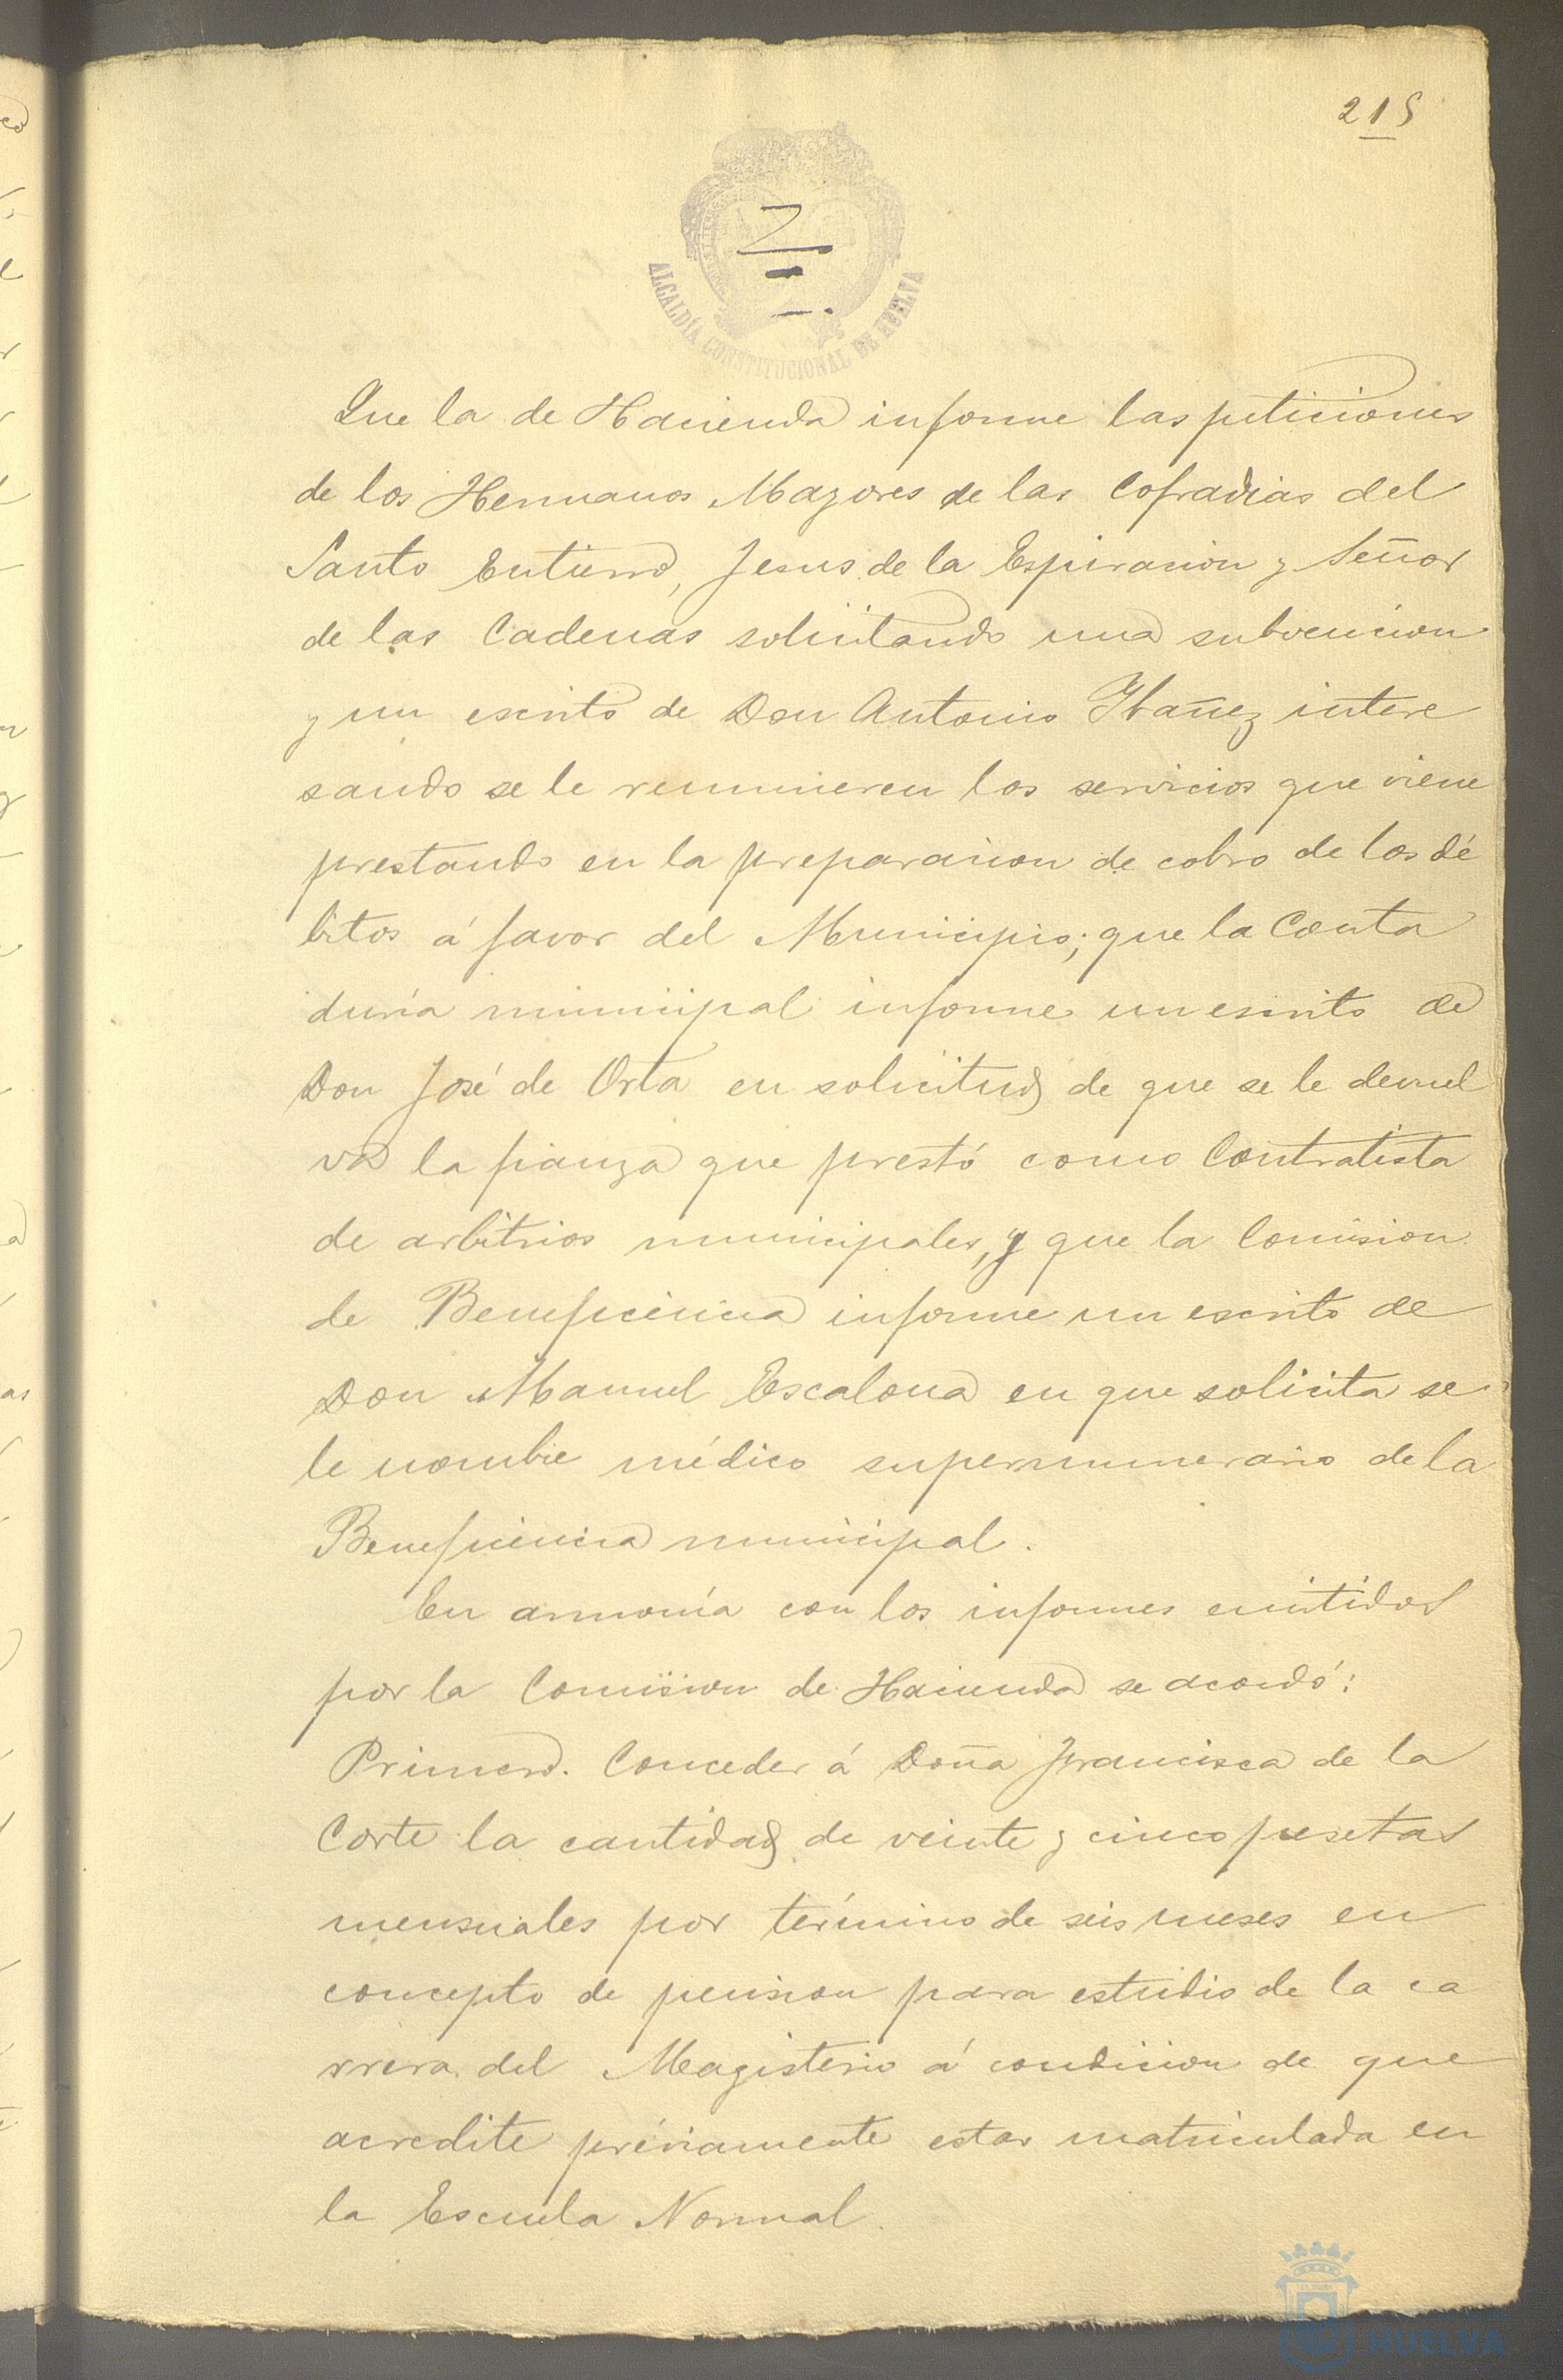 215
ALCALDÍA CONSTITUCIONAL DE HUELVA
Que la de Hacienda informe las peticiones
de los Hermanos Mayores de las Cofradias del
Santo Entierro, Jesus de la Espiracion y Señor
de las Cadenas solicitando una subvencion
y un escrito de Don Antonio Ybañez intere
sando se le remuneren los servicios que viene
prestando en la preparacion de cobro de los dé
bitos á favor del Municipio; que la Conta
duría municipal informe un escrito de
Don José de Orta en solicitud de que se le devuel
va la fianza que prestó como Contratista
de arbitrios municipales, y que la Comision
de Beneficencia informe un escrito de
Don Manuel Escalona en que solicita se
le nombre médico supernumerario de la
Beneficencia municipal.
En armonía con los informes emitidos
por la Comision de Hacienda se acordó:
Primero. Conceder á Doña Francisca de la
Corte la cantidad de veinte y cinco pesetas
mensuales por término de seis meses en
concepto de pension para estudio de la ca
rrera del Magisterio á condicion de que
acredite préviamente estar matriculada en
la Escuela Normal.
HUELVA